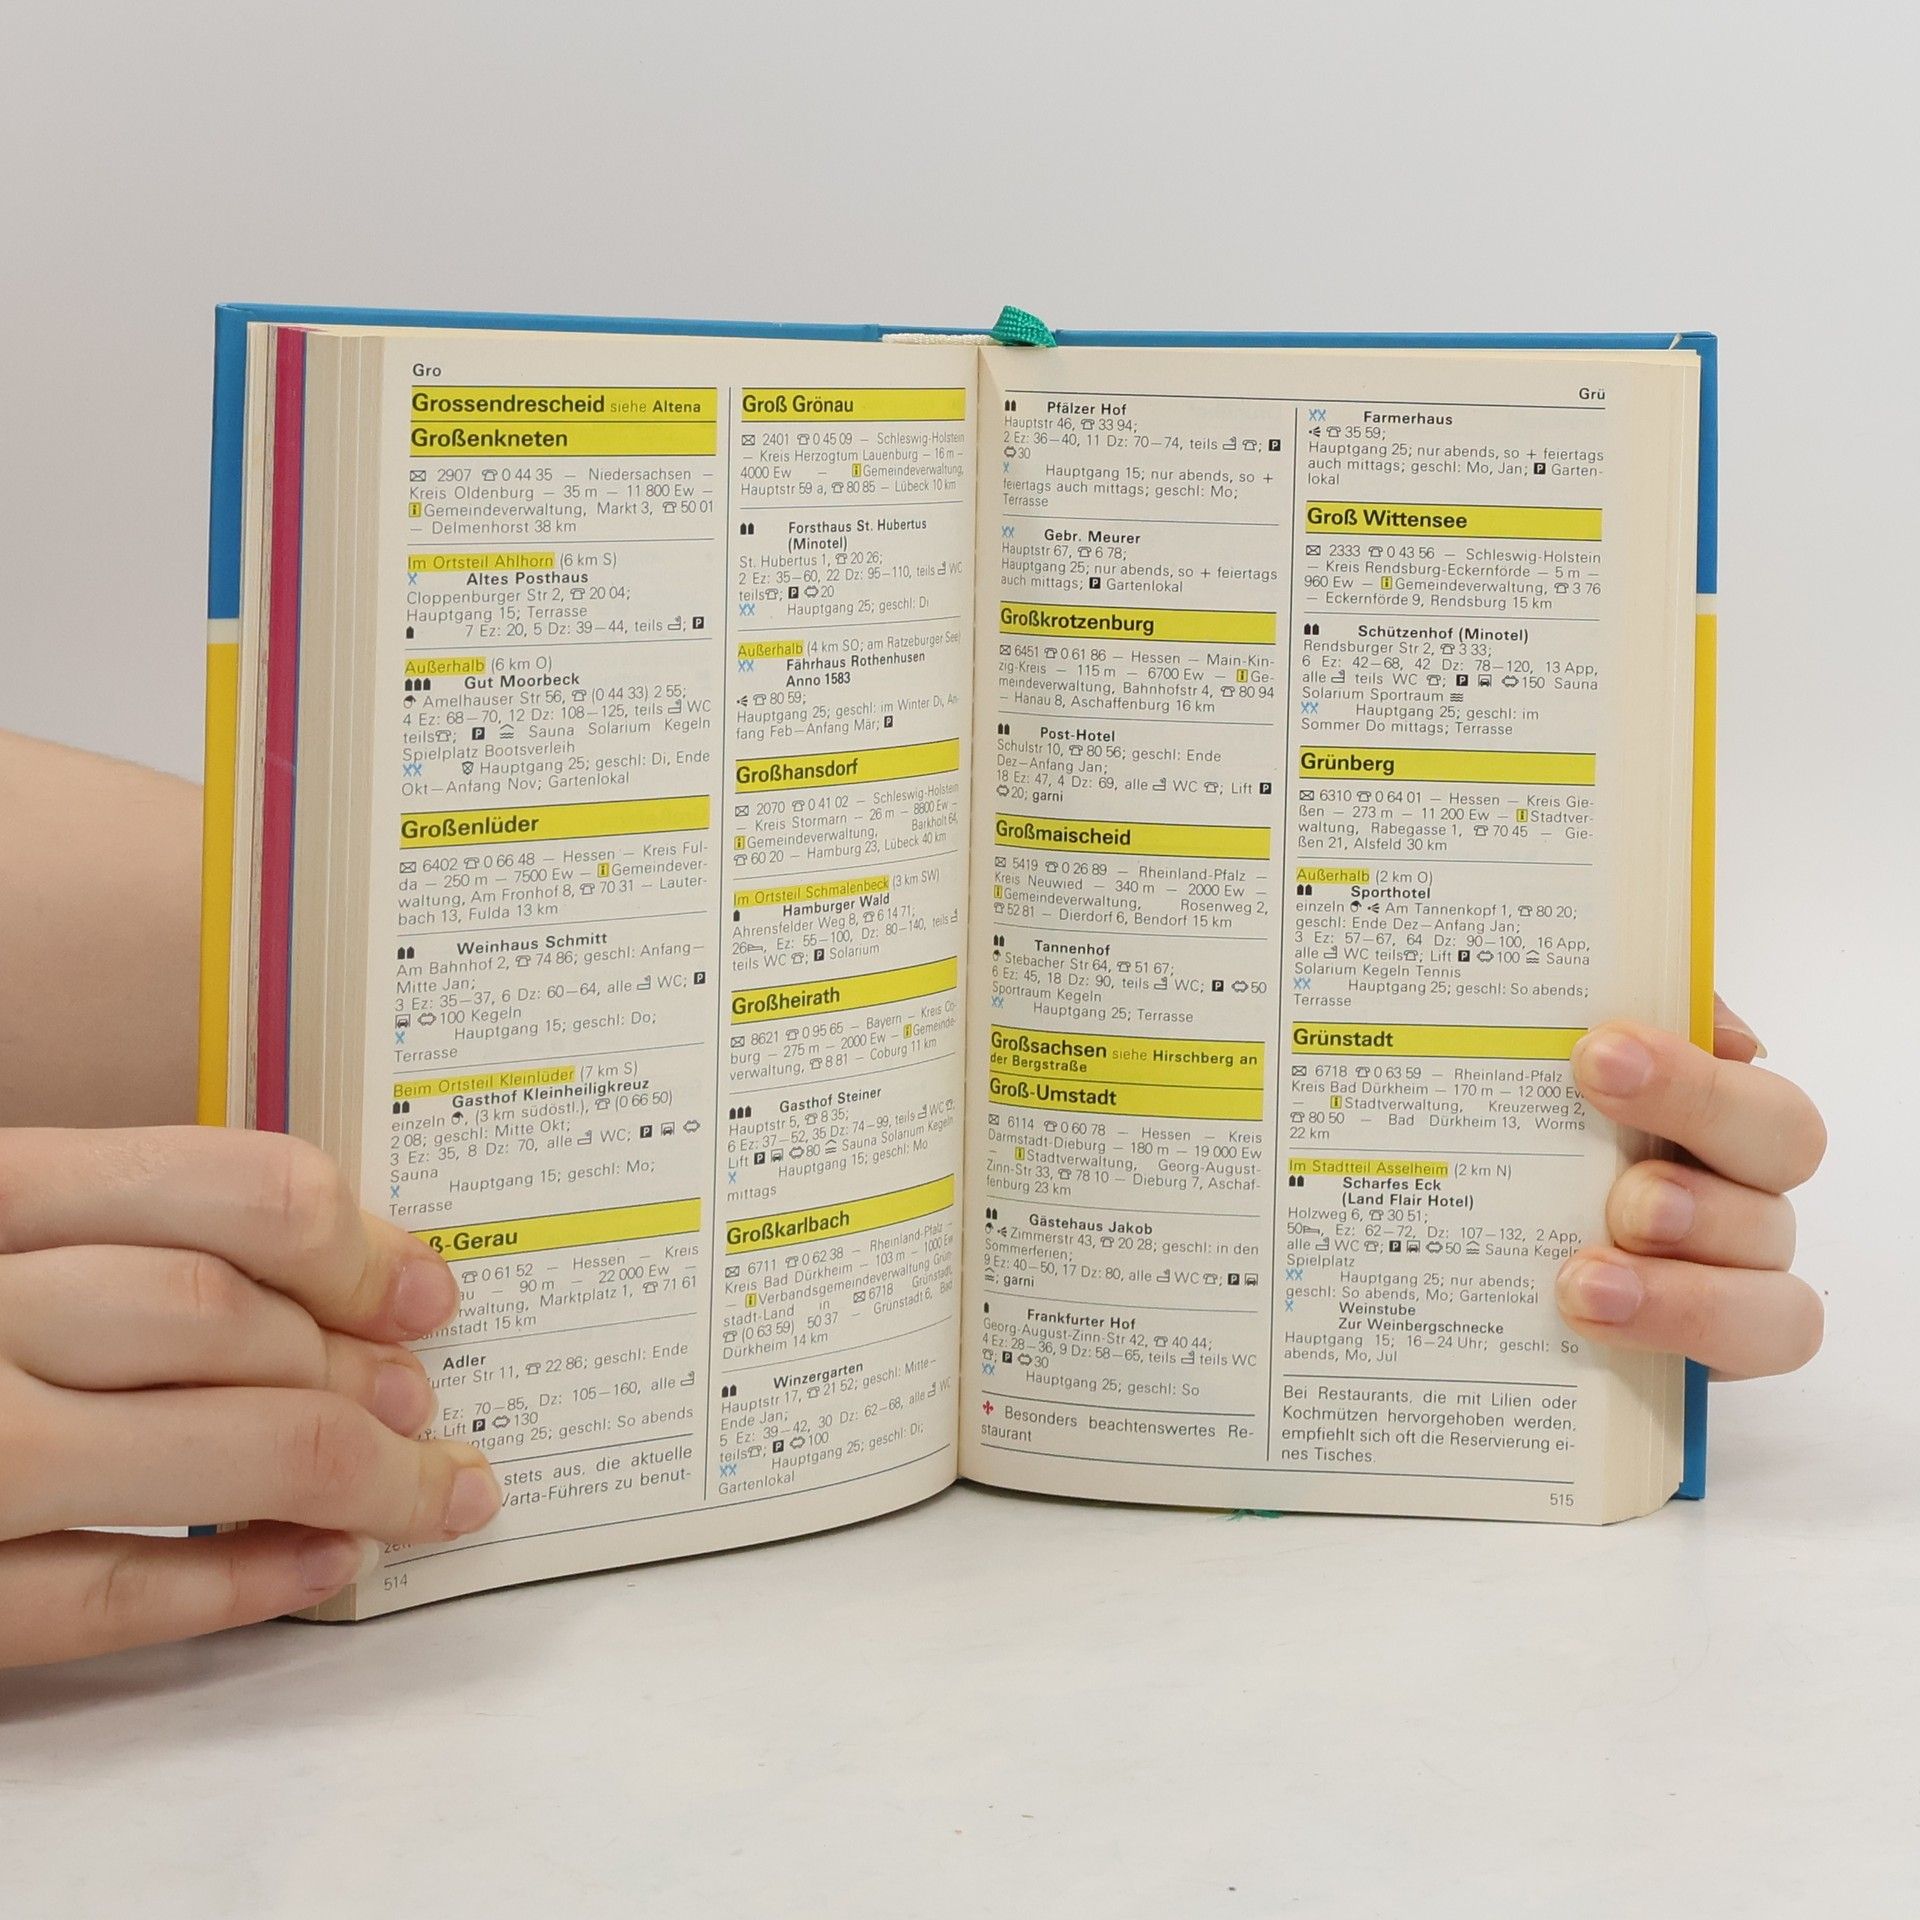 Gro
Grossendrescheid siehe Altena
Großenkneten
2907 0 44 35 — Niedersachsen —
Kreis Oldenburg — 35 m — 11 800 Ew —
i Gemeindeverwaltung, Markt 3, 50 01
— Delmenhorst 38 km
Im Ortsteil Ahlhorn (6 km S)
Altes Posthaus
Cloppenburger Str 2, 20 04;
Hauptgang 15; Terrasse
7 Ez: 20, 5 Dz: 39—44, teils ; P
Außerhalb (6 km O)
Gut Moorbeck
Amelhauser Str 56, (0 44 33) 2 55;
4 Ez: 68—70, 12 Dz: 108—125, teils WC
teils ; P Sauna Solarium Kegeln
Spielplatz Bootsverleih
XX Hauptgang 25; geschl: Di, Ende
Okt—Anfang Nov; Gartenlokal
Großenlüder
6402 0 66 48 — Hessen — Kreis Ful-
da — 250 m — 7500 Ew — i Gemeindever-
waltung, Am Fronhof 8, 70 31 — Lauter-
bach 13, Fulda 13 km
Weinhaus Schmitt
Am Bahnhof 2, 74 86; geschl: Anfang—
Mitte Jan;
3 Ez: 35—37, 6 Dz: 60—64, alle WC; P
100 Kegeln
X Hauptgang 15; geschl: Do;
Terrasse
Beim Ortsteil Kleinlüder (7 km S)
Gasthof Kleinheiligkreuz
einzeln , (3 km südöstl.), (0 66 50)
2 08; geschl: Mitte Okt;
3 Ez: 35, 8 Dz: 70, alle WC; P
Sauna
X Hauptgang 15; geschl: Mo;
Terrasse
ß-Gerau
0 61 52 — Hessen — Kreis
au — 90 m — 22 000 Ew —
rwaltung, Marktplatz 1, 71 61
mstadt 15 km
Adler
urter Str 11, 22 86; geschl: Ende
Ez: 70—85, Dz: 105—160, alle
; Lift P 130
ptgang 25; geschl: So abends
stets aus, die aktuelle
Varta-Führers zu benut-
zen
514
Groß Grönau
2401 0 45 09 — Schleswig-Holstein
— Kreis Herzogtum Lauenburg — 16 m —
4000 Ew — i Gemeindeverwaltung,
Hauptstr 59 a, 80 85 — Lübeck 10 km
Forsthaus St. Hubertus
(Minotel)
St. Hubertus 1, 20 26;
2 Ez: 35—60, 22 Dz: 95—110, teils WC
teils ; P 20
XX Hauptgang 25; geschl: Di
Außerhalb (4 km SO; am Ratzeburger See)
XX Fährhaus Rothenhusen
Anno 1583
80 59;
Hauptgang 25; geschl: im Winter Di, An-
fang Feb—Anfang Mär; P
Großhansdorf
2070 0 41 02 — Schleswig-Holstein
— Kreis Stormarn — 26 m — 8800 Ew —
i Gemeindeverwaltung, Barkholt 64,
60 20 — Hamburg 23, Lübeck 40 km
Im Ortsteil Schmalenbeck (3 km SW)
Hamburger Wald
Ahrensfelder Weg 8, 6 14 71;
26 , Ez: 55—100, Dz: 80—140, teils
teils WC ; P Solarium
Großheirath
8621 0 95 65 — Bayern — Kreis Co-
burg — 275 m — 2000 Ew — i Gemeinde-
verwaltung, 8 81 — Coburg 11 km
Gasthof Steiner
Hauptstr 5, 8 35;
6 Ez: 37—52, 35 Dz: 74—99, teils WC ;
Lift P 80 Sauna Solarium Kegeln
X Hauptgang 15; geschl: Mo
mittags
Großkarlbach
6711 0 62 38 — Rheinland-Pfalz —
Kreis Bad Dürkheim — 103 m — 1000 Ew
— i Verbandsgemeindeverwaltung Grün-
stadt-Land in 6718 Grünstadt,
(0 63 59) 50 37 — Grünstadt 6, Bad
Dürkheim 14 km
Winzergarten
Hauptstr 17, 21 52; geschl: Mitte—
Ende Jan;
5 Ez: 39—42, 30 Dz: 62—68, alle WC
teils ; P 100
XX Hauptgang 25; geschl: Di;
Gartenlokal
Grü
Pfälzer Hof
Hauptstr 46, 33 94;
2 Ez: 36—40, 11 Dz: 70—74, teils ; P
30
X Hauptgang 15; nur abends, so +
feiertags auch mittags; geschl: Mo;
Terrasse
XX Gebr. Meurer
Hauptstr 67, 6 78;
Hauptgang 25; nur abends, so + feiertags
auch mittags; P Gartenlokal
Großkrotzenburg
6451 0 61 86 — Hessen — Main-Kin-
zig-Kreis — 115 m — 6700 Ew — i Ge-
meindeverwaltung, Bahnhofstr 4, 80 94
— Hanau 8, Aschaffenburg 16 km
Post-Hotel
Schulstr 10, 80 56; geschl: Ende
Dez—Anfang Jan;
18 Ez: 47, 4 Dz: 69, alle WC ; Lift P
20; garni
Großmaischeid
5419 0 26 89 — Rheinland-Pfalz —
Kreis Neuwied — 340 m — 2000 Ew —
i Gemeindeverwaltung, Rosenweg 2,
52 81 — Dierdorf 6, Bendorf 15 km
Tannenhof
Stebacher Str 64, 51 67;
6 Ez: 45, 18 Dz: 90, teils WC; P 50
Sportraum Kegeln
XX Hauptgang 25; Terrasse
Großsachsen siehe Hirschberg an
der Bergstraße
Groß-Umstadt
6114 0 60 78 — Hessen — Kreis
Darmstadt-Dieburg — 180 m — 19 000 Ew
— i Stadtverwaltung, Georg-August-
Zinn-Str 33, 78 10 — Dieburg 7, Aschaf-
fenburg 23 km
Gästehaus Jakob
Zimmerstr 43, 20 28; geschl: in den
Sommerferien;
9 Ez: 40—50, 17 Dz: 80, alle WC ; P
; garni
Frankfurter Hof
Georg-August-Zinn-Str 42, 40 44;
4 Ez: 28—36, 9 Dz: 58—65, teils teils WC
; P 30
XX Hauptgang 25; geschl: So
Besonders beachtenswertes Re-
staurant
XX Farmerhaus
35 59;
Hauptgang 25; nur abends, so + feiertags
auch mittags; geschl: Mo, Jan; P Garten-
lokal
Groß Wittensee
2333 0 43 56 — Schleswig-Holstein
— Kreis Rendsburg-Eckernförde — 5 m —
960 Ew — i Gemeindeverwaltung, 3 76
— Eckernförde 9, Rendsburg 15 km
Schützenhof (Minotel)
Rendsburger Str 2, 3 33;
6 Ez: 42—68, 42 Dz: 78—120, 13 App,
alle teils WC ; P 150 Sauna
Solarium Sportraum
XX Hauptgang 25; geschl: im
Sommer Do mittags; Terrasse
Grünberg
6310 0 64 01 — Hessen — Kreis Gie-
ßen — 273 m — 11 200 Ew — i Stadtver-
waltung, Rabegasse 1, 70 45 — Gie-
ßen 21, Alsfeld 30 km
Außerhalb (2 km O)
Sporthotel
einzeln Am Tannenkopf 1, 80 20;
geschl: Ende Dez—Anfang Jan;
3 Ez: 57—67, 64 Dz: 90—100, 16 App,
alle WC teils ; Lift P 100 Sauna
Solarium Kegeln Tennis
XX Hauptgang 25; geschl: So abends;
Terrasse
Grünstadt
6718 0 63 59 — Rheinland-Pfalz
Kreis Bad Dürkheim — 170 m — 12 000 Ew
— i Stadtverwaltung, Kreuzerweg 2,
80 50 — Bad Dürkheim 13, Worms
22 km
Im Stadtteil Asselheim (2 km N)
Scharfes Eck
(Land Flair Hotel)
Holzweg 6, 30 51;
50 , Ez: 62—72, Dz: 107—132, 2 App,
alle WC ; P 50 Sauna Kegeln
Spielplatz
XX Hauptgang 25; nur abends;
geschl: So abends, Mo; Gartenlokal
X Weinstube
Zur Weinbergschnecke
Hauptgang 15; 16—24 Uhr; geschl: So
abends, Mo, Jul
Bei Restaurants, die mit Lilien oder
Kochmützen hervorgehoben werden,
empfiehlt sich oft die Reservierung ei-
nes Tisches.
515